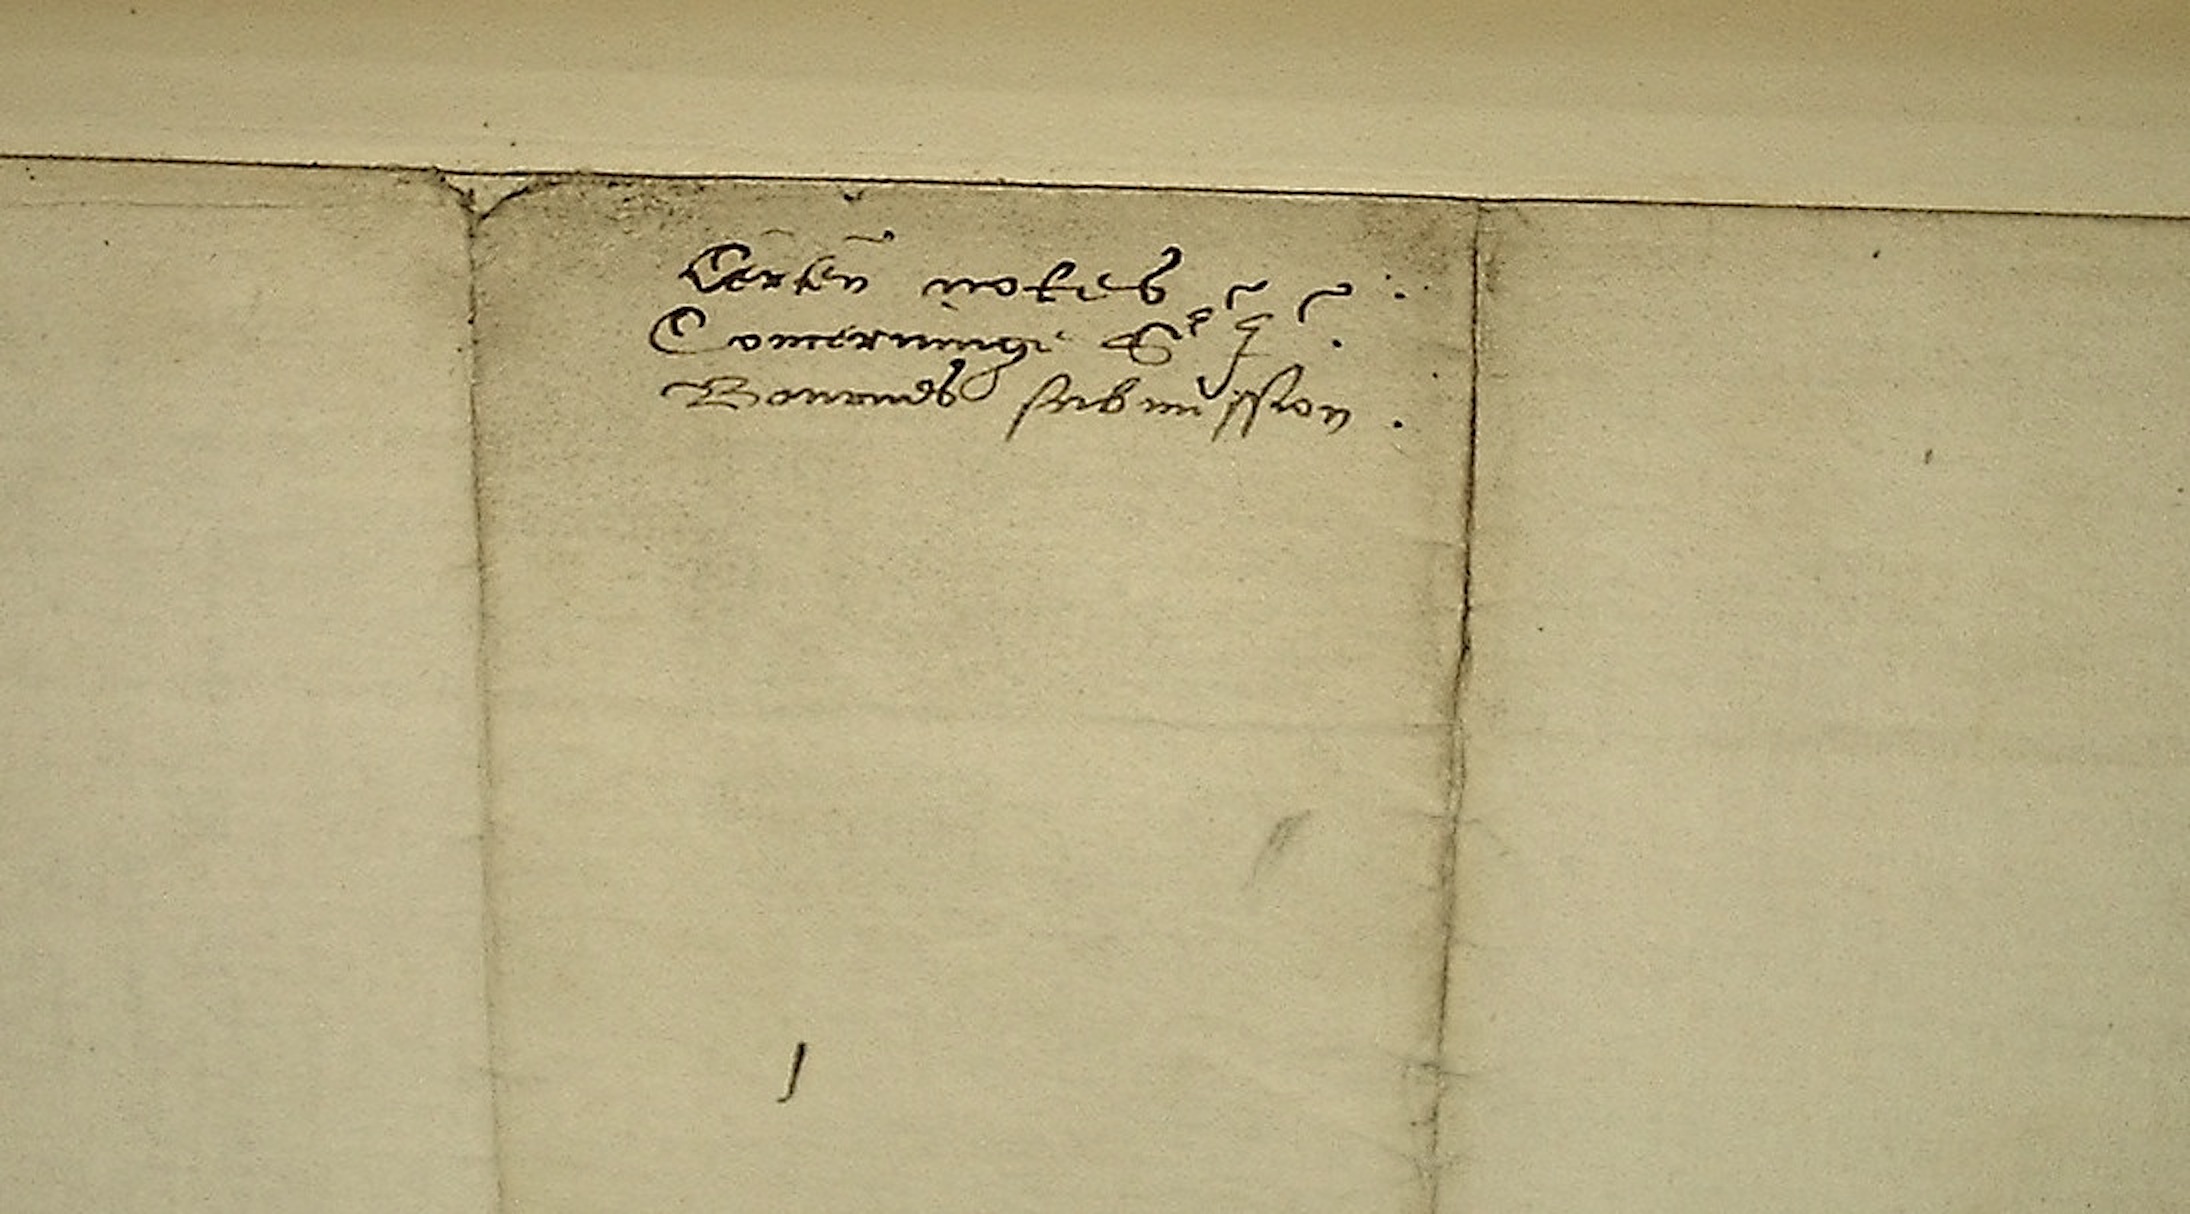 Certen notes
Concerninge Sr
Bowrnes submission .